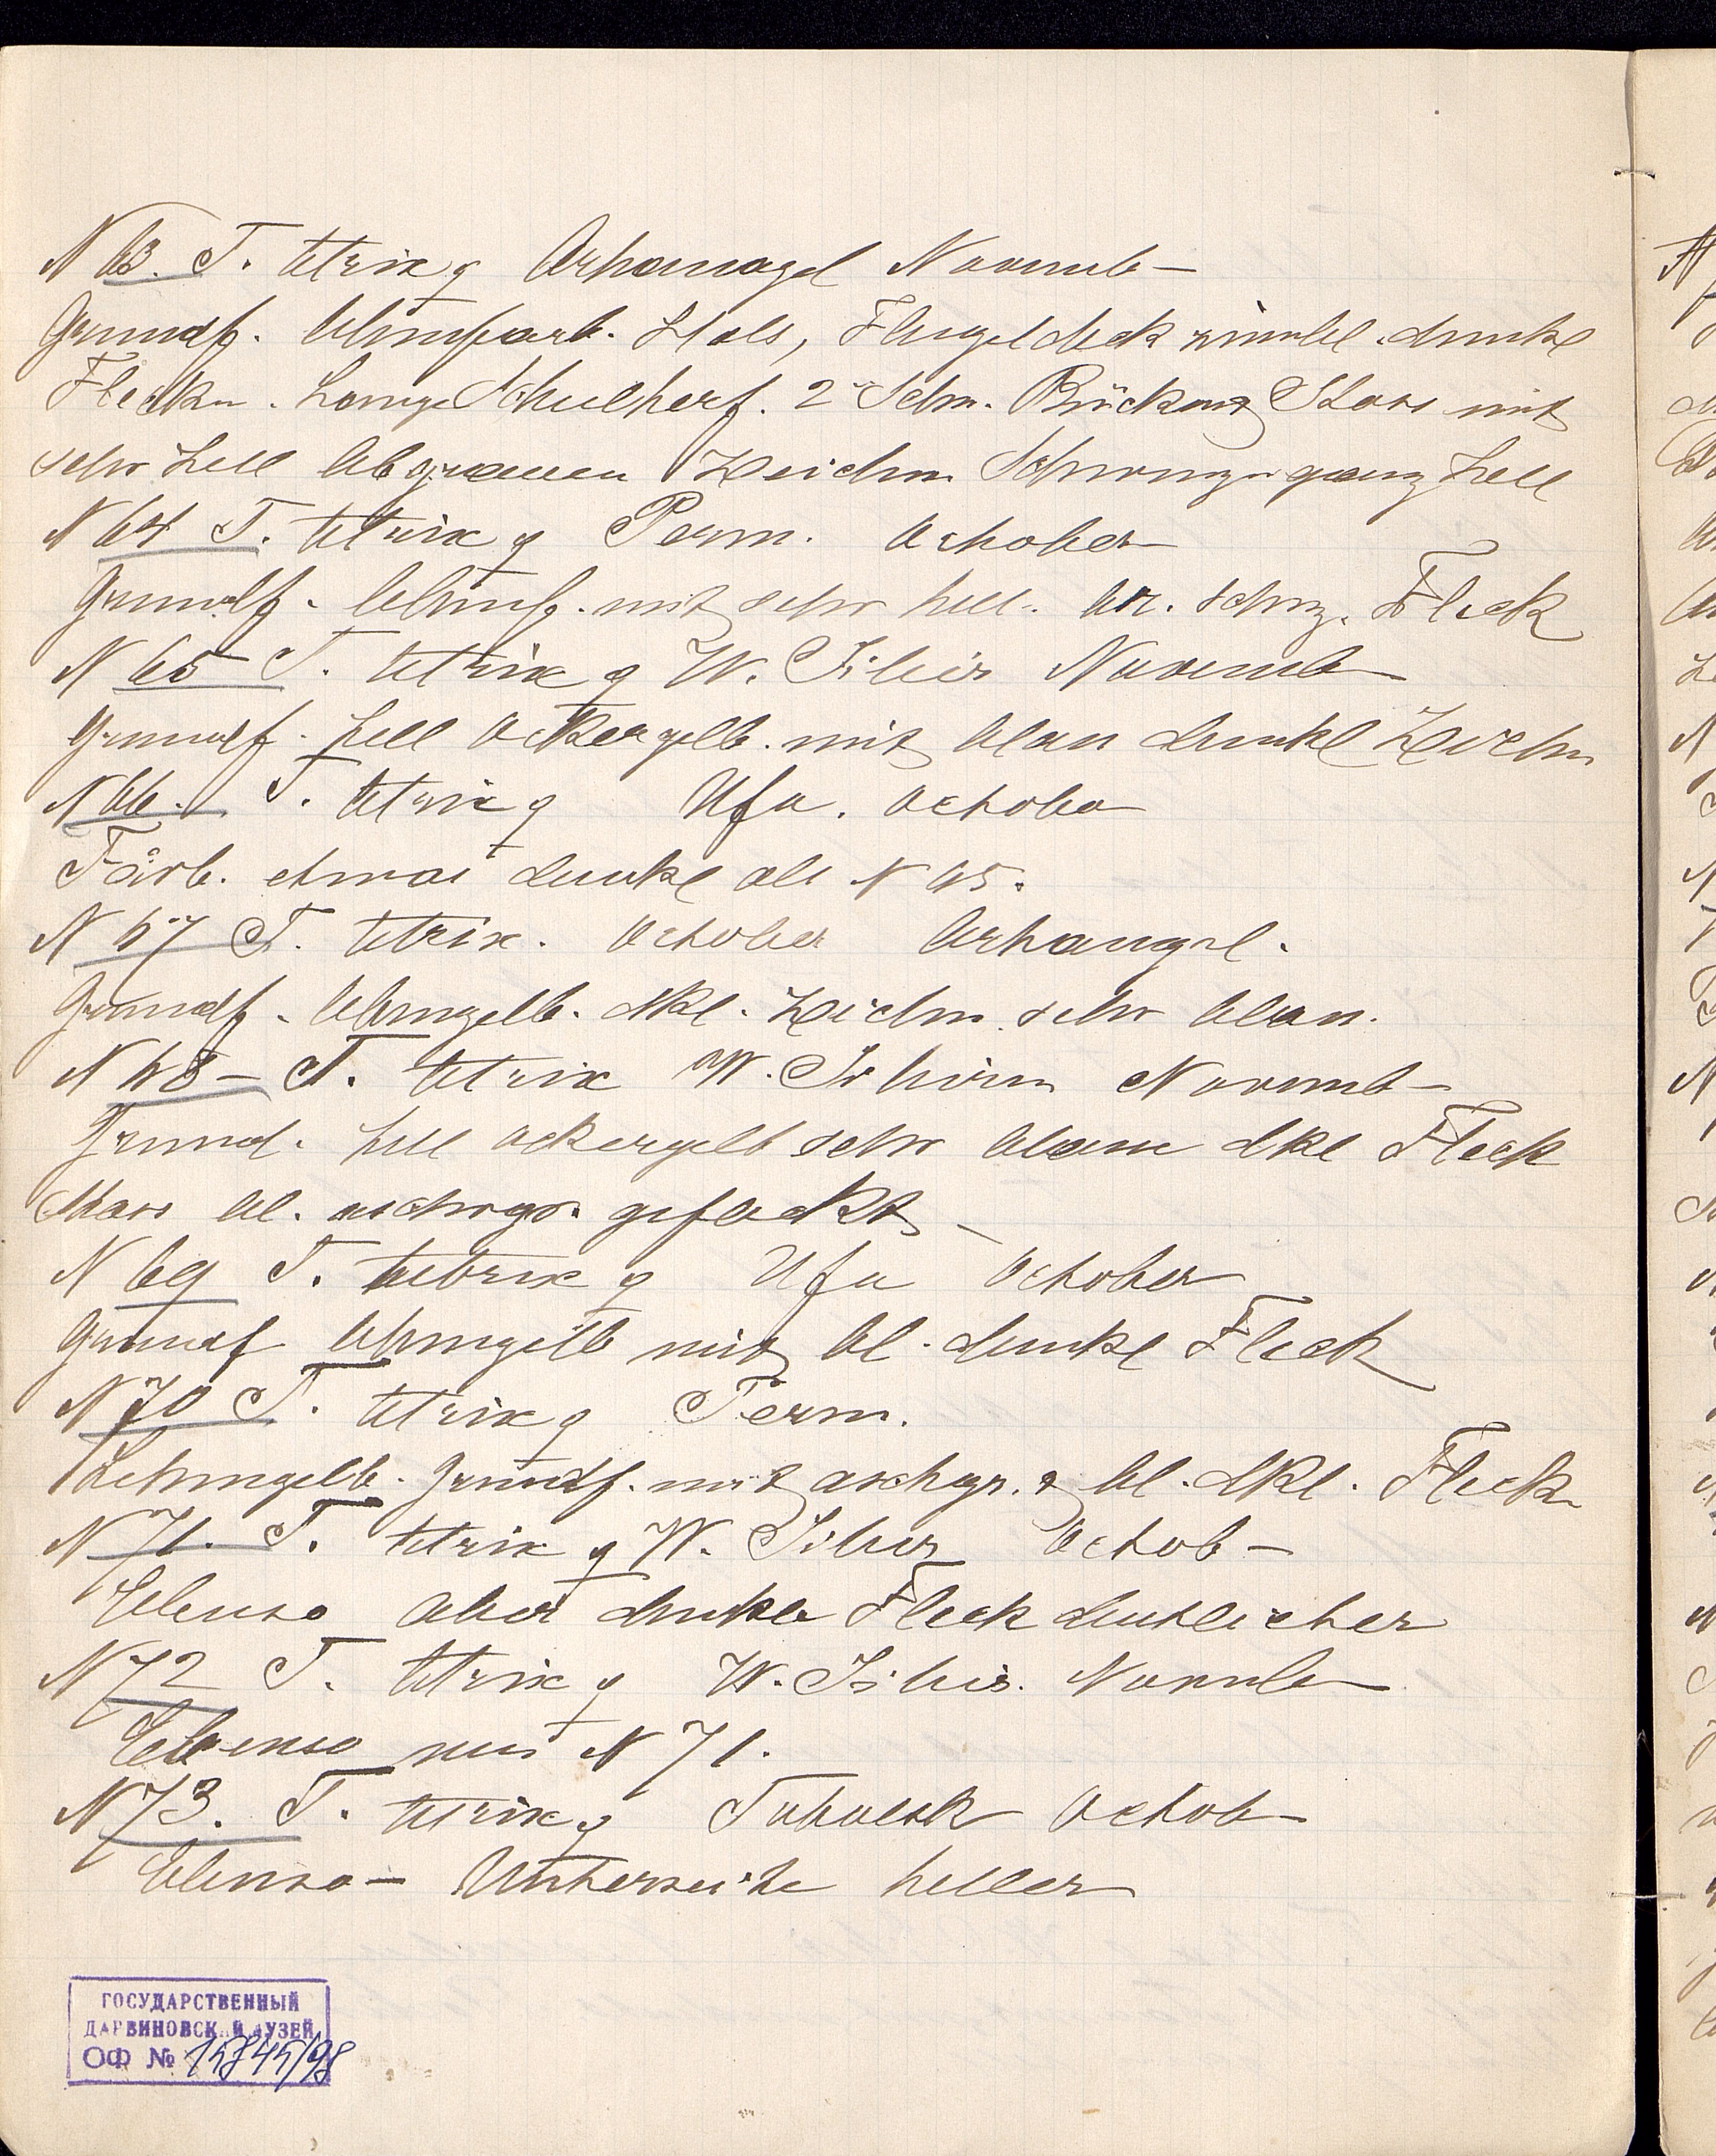 N 63. T. tetrix ♀ Arhanagel Novemb-
Grundf. lehmfarb. Hals, Flugeldeck dunkl
Flecken. Lange 2 Schn. Rücken Stoss mit
sehr hell Abgrauen Zeichn Schwingen ganz hell
N 64 T. tetrix ♀ Perm. October
Grundf. lehmf. mit sehr hell. br. schwz. Fleck
N 65 T. tetrix ♀ W. Sibir Novemb
Grundf. hell ockergelb. mit blau dunkl Zeichn
N 66. T. tetrix ♀ Ufa. October
Färb. etwas dunkl als N 65.
N 67 T. tetrix. October Arhangel.
Grundf. lehmgelb. dkl. Zeichn. sehr blau.
N 68- T. tetrix W. Sibirien Novemb-
Grund. hell ockergelb sehr blaue dkl Fleck
Stoss bl. gefleckt
N 69 T. tetrix ♀ Ufa October
Grundf lehmgelb mit bl. dunkl Fleck
N 70 T. tetrix ♀ Perm.
Lehmgelb. Grundf. mit aschgr. & bl. dkl. Fleck
N 71. T. tetrix ♀ W. Sibir Octob-
Ebenso aber dunkle Fleck deutlicher
N 72 T. tetrix ♀ W. Sibir. Novemb
Ebenso wie N 71.
N 73. T. tetrix ♀ Tobolsk Octob-
Ebenso- Unterseite heller
ГОСУДАРСТВЕННЫЙ
ДАРВИНОВСКИЙ МУЗЕЙ
ОФ № 15845/98